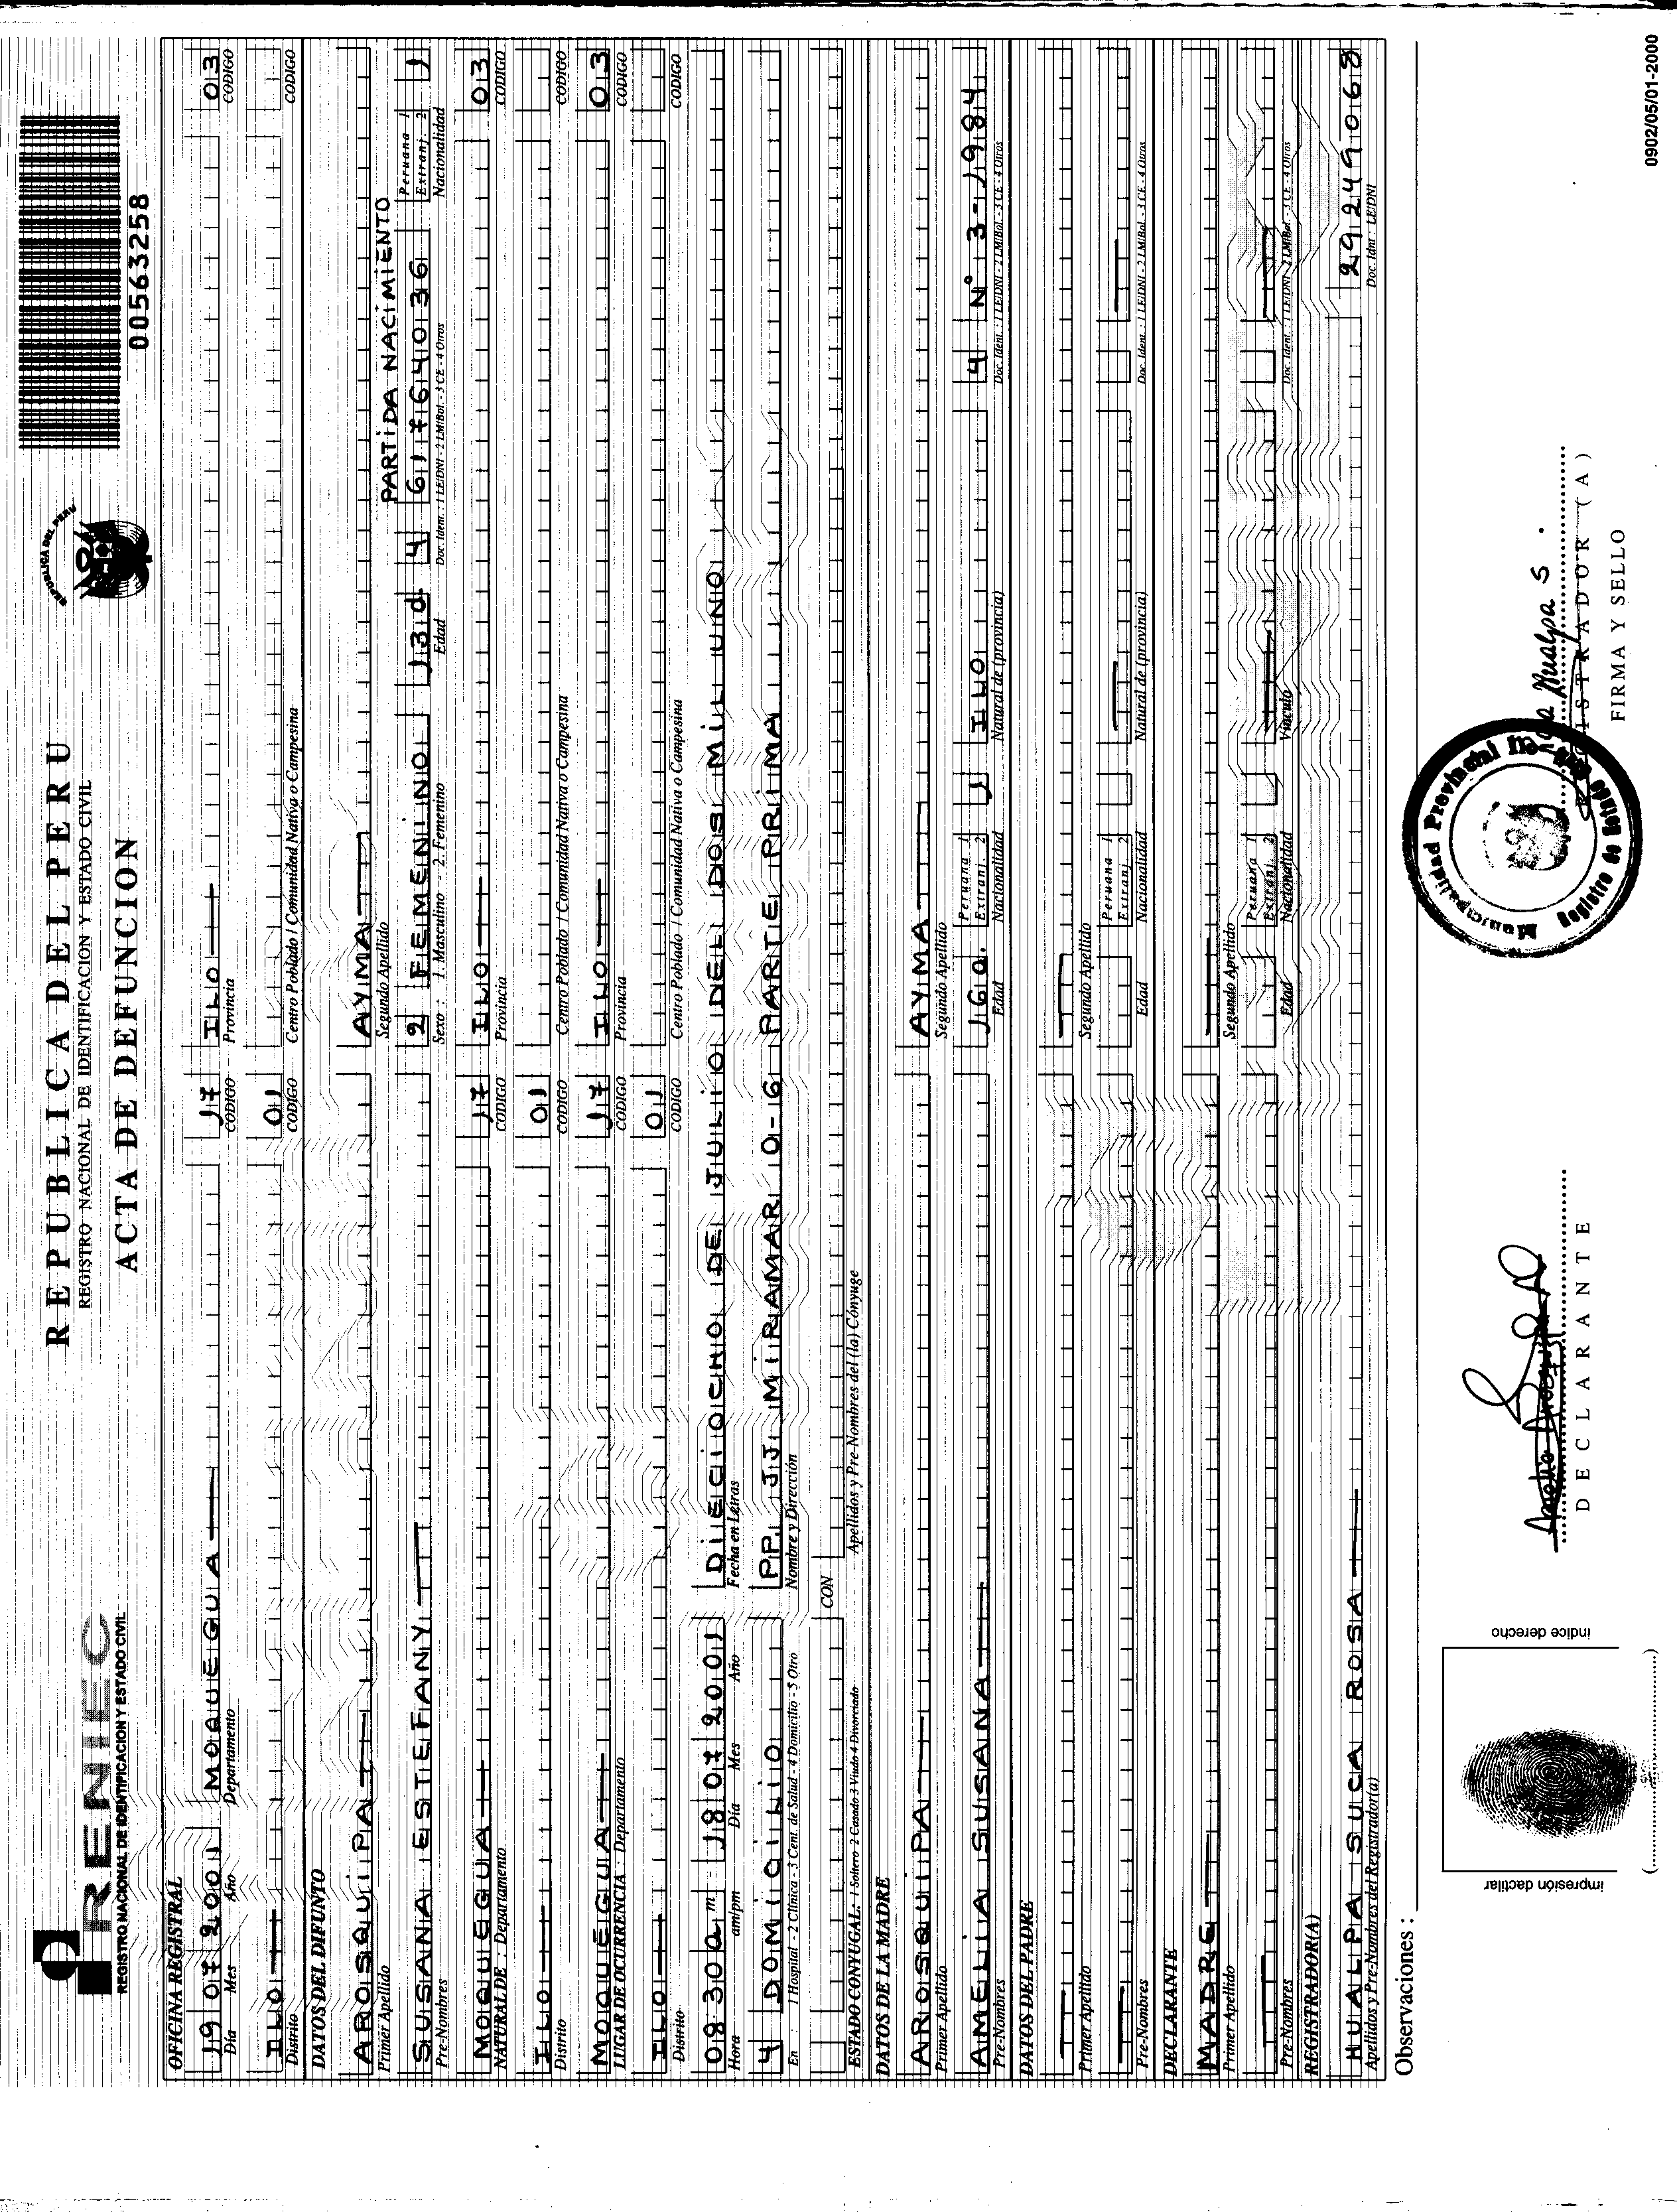 RENIEC
REGISTRO NACIONAL DE IDENTIFICACION Y ESTADO CIVIL
REPUBLICA DEL PERU
REGISTRO NACIONAL DE IDENTIFICACION Y ESTADO CIVIL
ACTA DE DEFUNCION
REPUBLICA DEL PERU
00563258
OFICINA REGISTRAL
19 07 2001 MOQUEGUA 17 ILO 03
Día Mes Año Departamento CODIGO Provincia CODIGO
ILO 01
Distrito CODIGO Centro Poblado / Comunidad Nativa o Campesina CODIGO
DATOS DEL DIFUNTO
AROSQUIPA AYMA
Primer Apellido Segundo Apellido
PARTIDA NACIMIENTO
SUSANA ESTEFANY 2 FEMENINO 13d 4 61764036 Peruana 1 Extranj. 2 1
Pre-Nombres Sexo : 1. Masculino - 2. Femenino Edad Doc. Ident. : 1 LE/DNI - 2 LM/Bol. - 3 CE - 4 Otros Nacionalidad
MOQUEGUA 17 ILO 03
NATURAL DE : Departamento CODIGO Provincia CODIGO
ILO 01
Distrito CODIGO Centro Poblado / Comunidad Nativa o Campesina CODIGO
MOQUEGUA 17 ILO 03
LUGAR DE OCURRENCIA : Departamento CODIGO Provincia CODIGO
ILO 01
Distrito CODIGO Centro Poblado / Comunidad Nativa o Campesina CODIGO
08 30 a m - 18 07 2001 DIECIOCHO DE JULIO DEL DOS MIL UNO
Hora am/pm Día Mes Año Fecha en Letras
4 DOMICILIO PP. JJ. MIRAMAR O-6 PARTE PRIMA
En : 1 Hospital - 2 Clínica - 3 Cent. de Salud - 4 Domicilio - 5 Otro Nombre y Dirección
CON
ESTADO CONYUGAL: 1 Soltero 2 Casado 3 Viudo 4 Divorciado Apellidos y Pre-Nombres del (la) Cónyuge
DATOS DE LA MADRE
AROSQUIPA AYMA
Primer Apellido Segundo Apellido
AMELIA SUSANA 16a. Peruana 1 Extranj. 2 1 ILO 4 N° 3-1984
Pre-Nombres Edad Nacionalidad Natural de (provincia) Doc. Ident. : 1 LE/DNI - 2 LM/Bol. - 3 CE - 4 Otros
DATOS DEL PADRE
Primer Apellido Segundo Apellido
Peruana 1 Extranj. 2
Pre-Nombres Edad Nacionalidad Natural de (provincia) Doc. Ident. : 1 LE/DNI - 2 LM/Bol. - 3 CE - 4 Otros
DECLARANTE
MADRE
Primer Apellido Segundo Apellido
Peruana 1 Extranj. 2
Pre-Nombres Edad Nacionalidad Vínculo Doc. Ident. : 1 LE/DNI - 2 LM/Bol. - 3 CE - 4 Otros
REGISTRADOR(A)
HUALPA SUCA ROSA 29249068
Apellidos y Pre-Nombres del Registrador(a) Doc. Idnt : LE/DNI
Observaciones :
impresión dactilar
índice derecho
DECLARANTE
Municipalidad Provincial
Registro de Estado
Hualpa S.
REGISTRADOR (A)
FIRMA Y SELLO
0902/05/01-2000